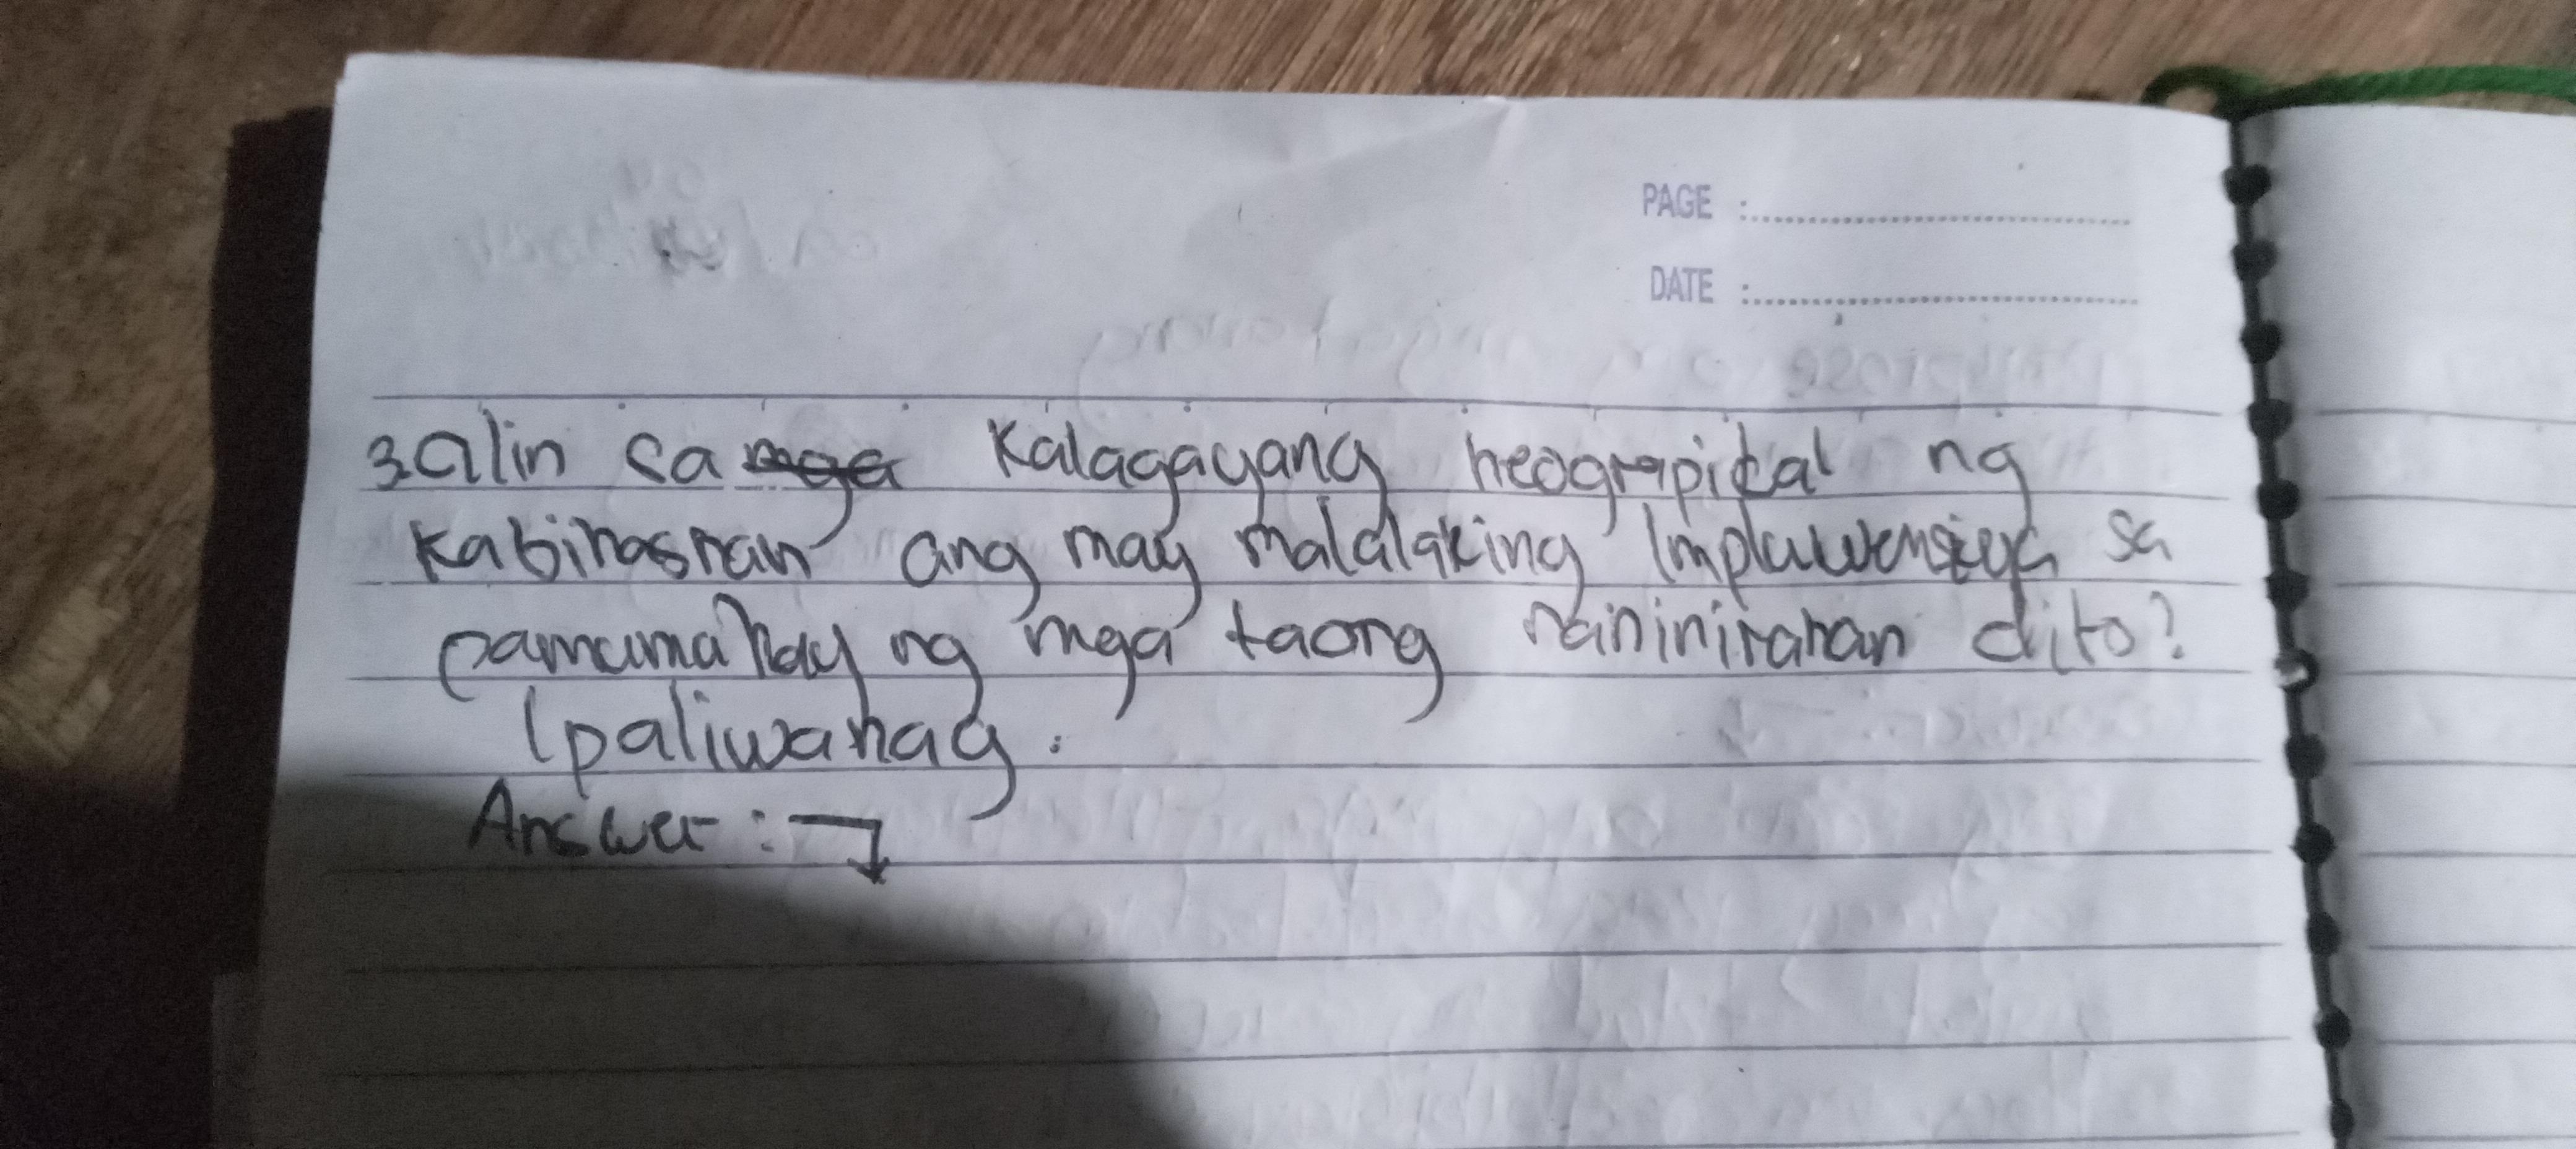 PAGE :
DATE :
3. Alin sa mga Kalagayang heograpikal ng
Kabihasnan ang may malalaking Impluwensiya sa
pamumahay ng mga taong naninirahan dito?
Ipaliwanag.
Answer :